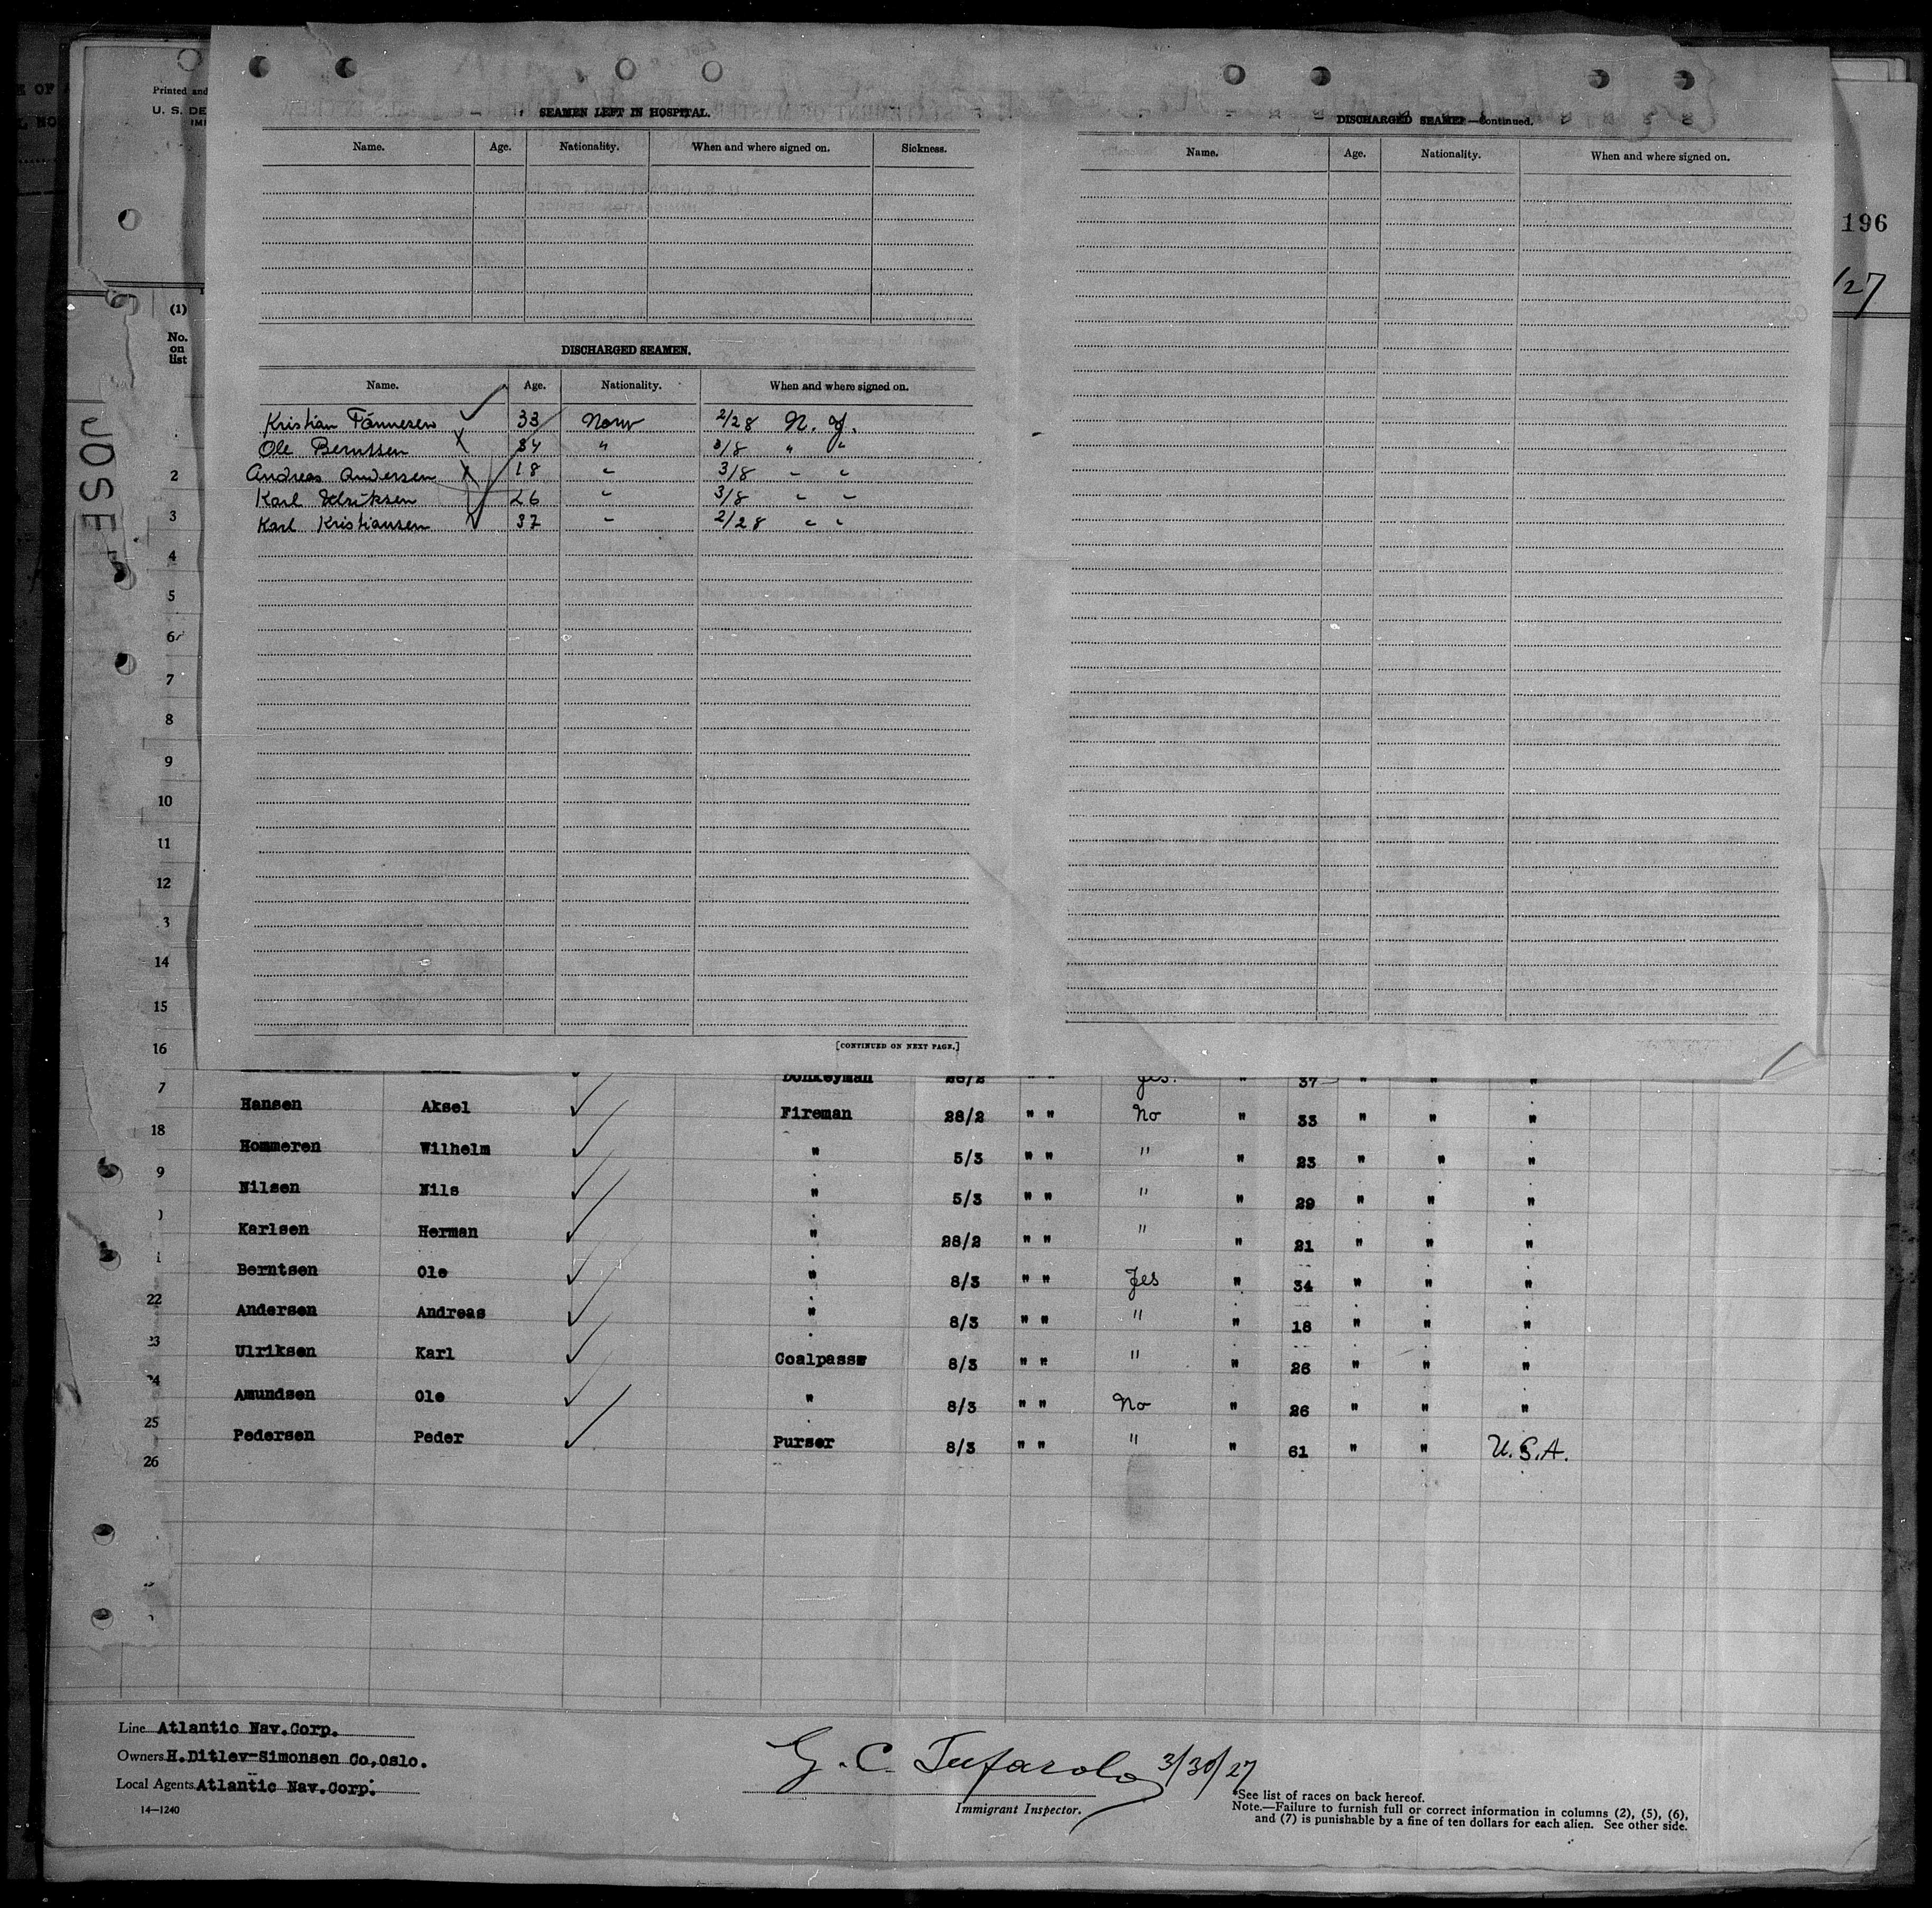 Printed and
U. S. DE
IMI
SEAMEN LEFT IN HOSPITAL.
Name. Age. Nationality. When and where signed on. Sickness.
DISCHARGED SEAMEN.
Name. Age. Nationality. When and where signed on.
Kristian Tönnesen 33 Norw 2/28 N. Y.
Ole Berntsen 34 " 3/8 " "
Andreas Andersen 18 " 3/8 " "
Karl Ulriksen 26 " 3/8 " "
Karl Kristiansen 37 " 2/28 " "
[CONTINUED ON NEXT PAGE.]
DISCHARGED SEAMEN—Continued.
Name. Age. Nationality. When and where signed on.
196
/27
(1)
No.
on
list
JOSE
2
3
4
5
6
7
8
9
10
11
12
3
14
15
16
7 Donkeyman 28/2 " " Yes. " 37 " " "
Hansen Aksel Fireman 28/2 " " No " 33 " " "
18
Hommeren Wilhelm " 5/3 " " " " 23 " " "
9
Nilsen Nils " 5/3 " " " " 29 " " "
Karlsen Herman " 28/2 " " " " 21 " " "
Berntsen Ole " 8/3 " " Yes " 34 " " "
22
Andersen Andreas " 8/3 " " " " 18 " " "
23
Ulriksen Karl Coalpasse 8/3 " " " " 26 " " "
24
Amundsen Ole " 8/3 " " No " 26 " " "
25
Pedersen Peder Purser 8/3 " " " " 61 " " U.S.A.
26
Line Atlantic Nav.Corp.
Owners H.Ditlev-Simonsen Co,Oslo.
Local Agents Atlantic Nav.Corp.
14—1240
G. C. Tufarolo 3/30/27
Immigrant Inspector.
*See list of races on back hereof.
Note.—Failure to furnish full or correct information in columns (2), (5), (6),
and (7) is punishable by a fine of ten dollars for each alien. See other side.